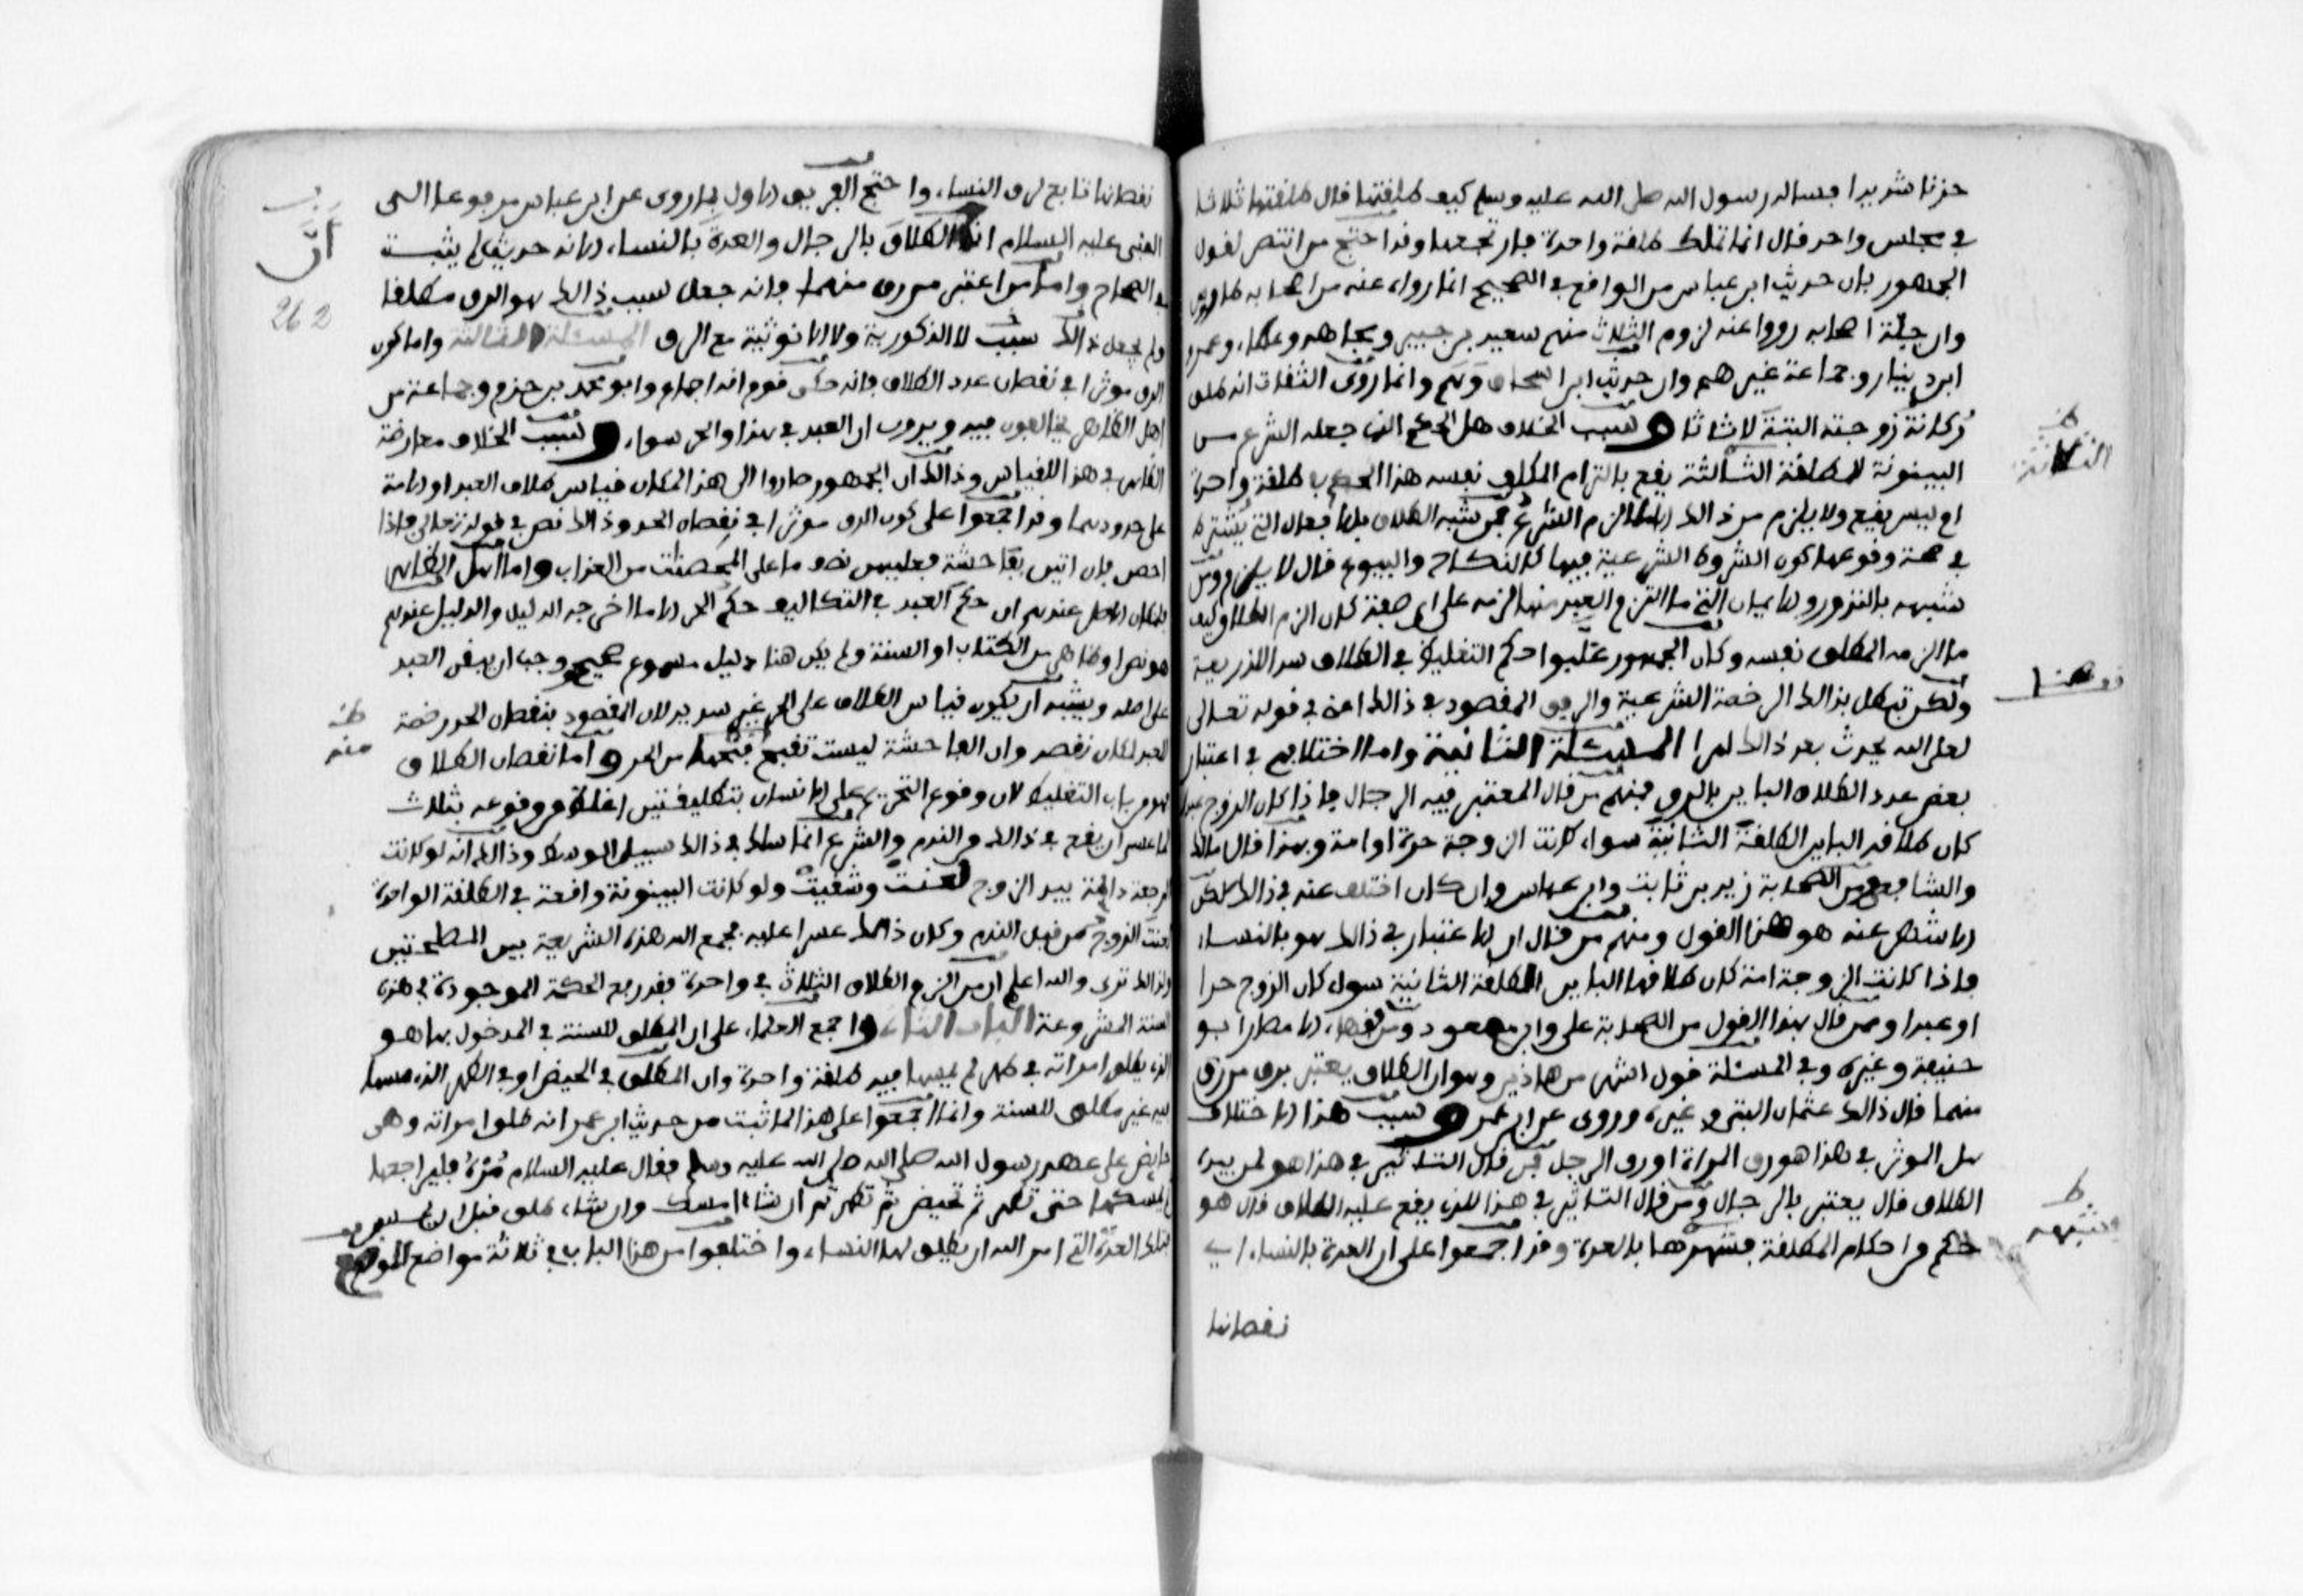 حزنا شديدا فساله رسول الله صلى الله عليه وسلم كيف طلقتها قال طلقتها ثلاثا
في مجلس واحد قال انما تلك طلقة واحدة فارتجعها وقد احتج من انتصر لقول
الجمهور بان حديث ابن عباس من الواقع في الصحيح انما رواه عنه من اصحابه طاوس
وان جلة اصحابه رووا عنه لزوم الثلاث منهم سعيد بن جبير ومجاهد وعطاء وعمرو
ابن دينار وجماعة غيرهم وان حديث ابن اسحاق وهم وانما روى الثقات انه طلق
ركانة زوجته البتة لا ثلاثا وسبب الخلاف هل الحكم الذي جعله الشرع من
البينونة للطلقة الثالثة يقع بالزام المكلف نفسه هذا الحكم في طلقة واحدة
ام ليس يقع ولا يلزم من ذالك الا ما الزم الشرع فمن شبه الطلاق بالافعال التي يشترط
في صحة وقوعها كون الشروط الشرعية فيها كالنكاح والبيوع قال لا يلزم ومن
شبهه بالنذور والايمان التي ما التزم العبد منها لزمه على اي صفة كان الزم الطلاق كيف
ما الزمه المطلق نفسه وكان الجمهور غلبوا حكم التغليظ في الطلاق سدا للذريعة
ولكن تبطل بذالك الرخصة الشرعية والرفق المقصود في ذالك اعني في قوله تعالى
لعل الله يحدث بعد ذالك امرا المسئلة الثانية واما اختلافهم في اعتبار
نقص عدد الطلاق الباين بالرق فمنهم من قال المعتبر فيه الرجال فاذا كان الزوج عبدا
كان طلاقه الباين الطلقة الثانية سواء كانت الزوجة حرة او امة وبهذا قال مالك
والشافعي ومن الصحابة زيد بن ثابت وابن عباس وان كان اختلف عنه في ذالك لكن
الاشهر عنه هو هذا القول ومنهم من قال ان الاعتبار في ذالك هو بالنساء
فاذا كانت الزوجة امة كان طلاقها الباين الطلقة الثانية سواء كان الزوج حرا
او عبدا وممن قال بهذا القول من الصحابة علي وابن مسعود ومن فقهاء الامصار ابو
حنيفة وغيره وفي المسئلة قول اشهر من هاذين وهو ان الطلاق يعتبر برق من رق
منهما قال ذالك عثمان البتي وغيره وروى عن ابن عمر وسبب هذا الاختلاف
هل الموثر في هذا هو رق المراة او رق الرجل فمن قال التاثير في هذا هو لمن بيده
الطلاق قال يعتبر بالرجال ومن قال التاثير في هذا للذي يقع عليه الطلاق قال هو
حكم من احكام المطلقة فشبهوها بالعدة وقد اجمعوا على ان العدة بالنساء اي
نقصانها
الثالثة
هنا
فشبهه
نقصانها تابع لرق النساء واحتج الفريق الاول بما روى عن ابن عباس مرفوعا الى
النبي عليه السلام انه الطلاق بالرجال والعدة بالنساء الا انه حديث لم يثبت
في الصحاح واما من اعتبر من رق منهما فانه جعل سبب ذالك هو الرق مطلقا
ولم يجعل ذالك سبب لا الذكورية ولا الانوثية مع الرق المسئلة الثالثة واما كون
الرق موثرا في نقصان عدد الطلاق فانه حكى قوم انه اجماع وابو محمد بن حزم وجماعة من
اهل الظاهر يخالفون فيه ويرون ان العبد في هذا والحر سواء وسبب الخلاف معارضة
الظاهر في هذا للقياس وذالك ان الجمهور صاروا الى هذا المكان قياس طلاق العبد او الامة
على حدودهما وقد اجمعوا على كون الرق موثرا في نقصان الحد وذالك نص في قوله تعالى فاذا
احصن فان اتين بفاحشة فعليهن نصف ما على المحصنات من العذاب واما اهل الظاهر
فلكان الاصل عندهم ان حكم العبد في التكاليف حكم الحر الا ما اخرجه الدليل والدليل عندهم
هو نص او ظاهر من الكتاب او السنة ولم يكن هنا دليل مسموع صحيح وجب ان يبقى العبد
على اصله ويشبه ان يكون قياس الطلاق على الحد غير سديد لان المقصود بنقصان الحد رخصة
العبد لمكان نقصه وان الفاحشة ليست تقبح قبحها من الحر واما نقصان الطلاق
فهو من باب التغليظ لان وقوع التحريم على الانسان بتطليقتين اغلظ من وقوعه بثلاث
لما عسى ان يقع في ذالك من الندم والشرع انما سلك في ذالك سبيل الوسط وذالك انه لو كانت
الرجعة دائمة بيد الزوج لعنتت وشقيت ولو كانت البينونة واقعة في الطلقة الواحدة
لعنت الزوج من قبل الندم وكان ذالك عسرا عليه فجمع الله هذه الشريعة بين المصلحتين
ولذالك نرى والله اعلم ان من الزم الطلاق الثلاث في واحدة فقد رفع الحكمة الموجودة في هذه
السنة المشروعة الباب الثاني واجمع العلماء على ان المطلق للسنة في المدخول بها هو
الذي يطلق امراته في طهر لم يمسها فيه طلقة واحدة وان المطلق في الحيض او في الطهر الذي مسها
فيه غير مطلق للسنة وانما اجمعوا على هذا لما ثبت من حديث ابن عمر انه طلق امراته وهي
حايض على عهد رسول الله صلى الله عليه وسلم فقال عليه السلام مره فليراجعها
ثم ليمسكها حتى تطهر ثم تحيض ثم تطهر ثم ان شاء امسك وان شاء طلق قبل ان يمس
فتلك العدة التي امر الله ان يطلق لها النساء واختلفوا من هذا الباب في ثلاثة مواضع الموضع
ان
262
منه